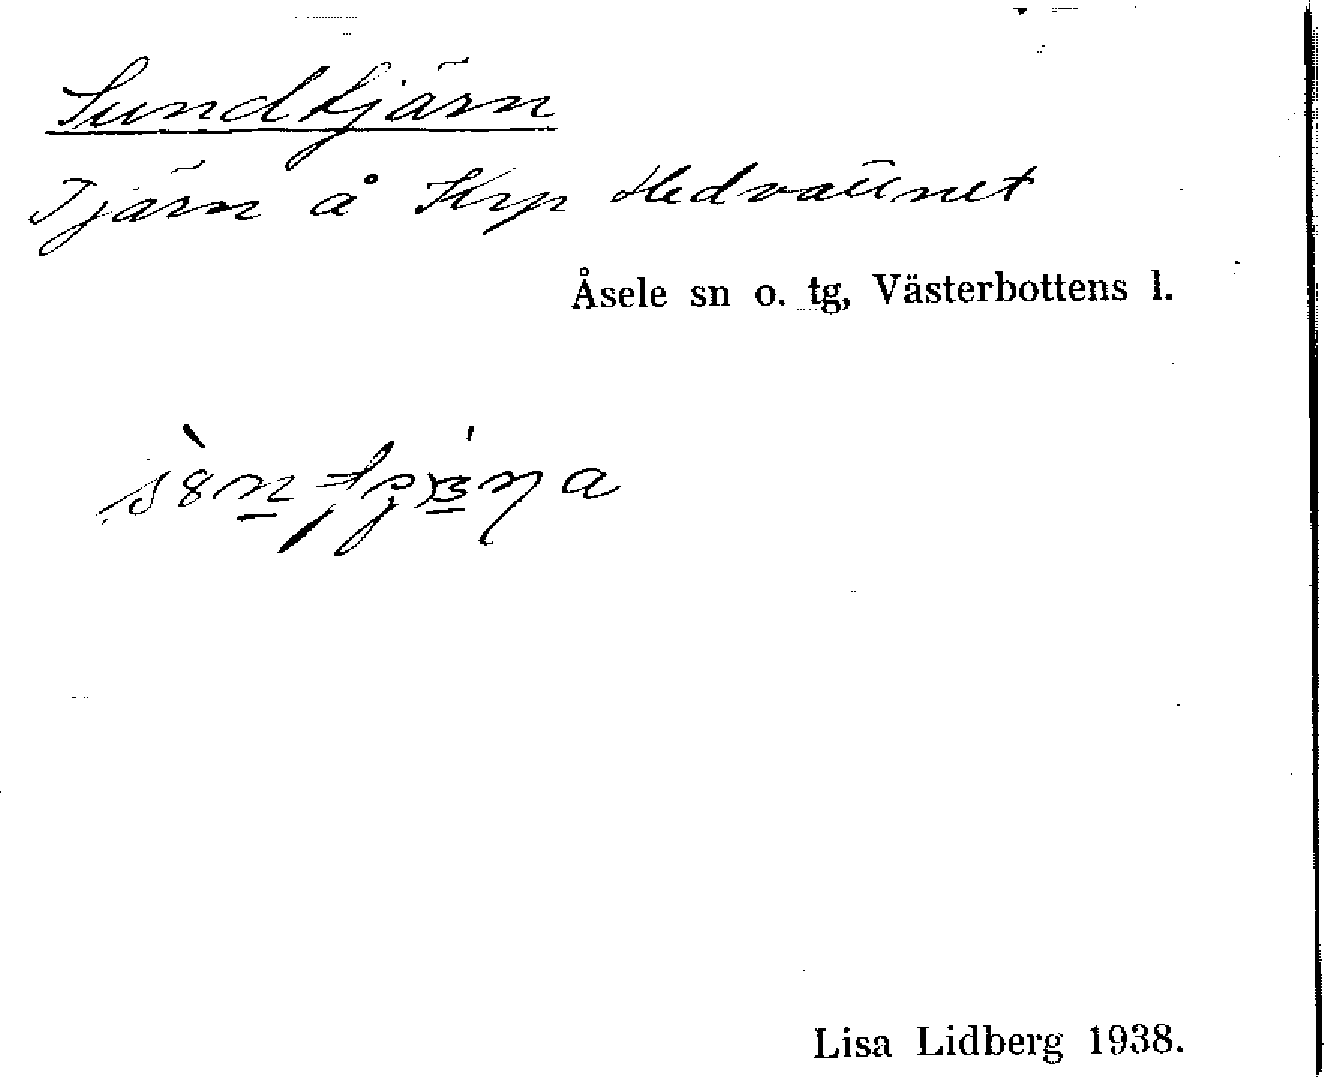 Sundtjärn
Tjärn å Krp Hedvattnet
Åsele sn o. tg, Västerbottens l.
Lisa Lidberg 1938.